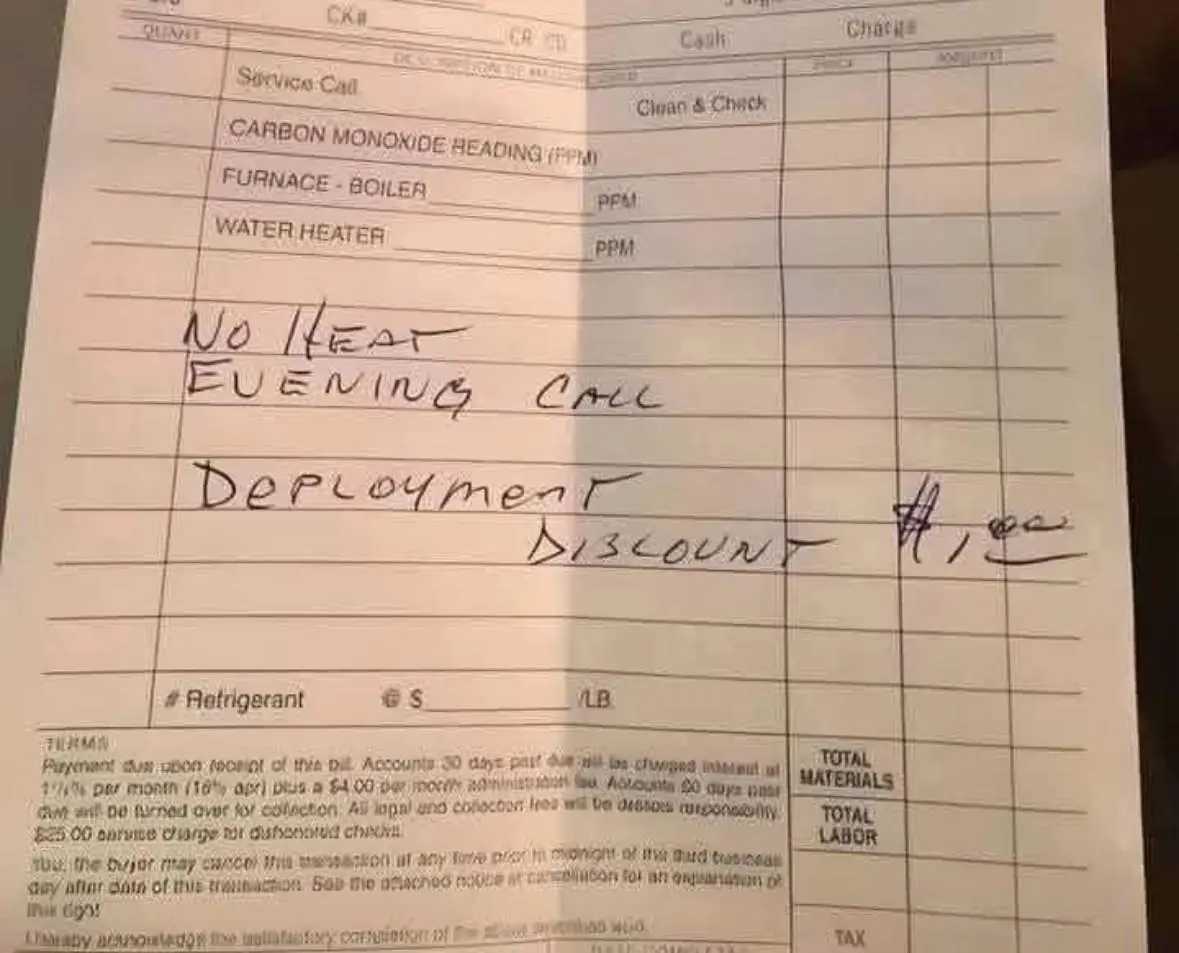 CK# CR CD Cash Charge
QUANT PRICE AMOUNT
Service Call Clean & Check
CARBON MONOXIDE READING (PPM)
FURNACE - BOILER PPM
WATER HEATER PPM
NO HEAT
EVENING CALL
DEPLOYMENT
DISCOUNT $1.00
# Refrigerant @ $ /LB.
TERMS
Payment due upon receipt of this bill. Accounts 30 days past due will be charged interest at
1½% per month (18% apr) plus a $4.00 per month administration fee. Accounts 60 days past
due will be turned over for collection. All legal and collection fees will be debtors responsibility.
$25.00 service charge for dishonored checks.
You, the buyer may cancel this transaction at any time prior to midnight of the third business
day after date of this transaction. See the attached notice of cancellation for an explanation of
this right
I hereby acknowledge the satisfactory completion of the above described work.
TOTAL
MATERIALS
TOTAL
LABOR
TAX